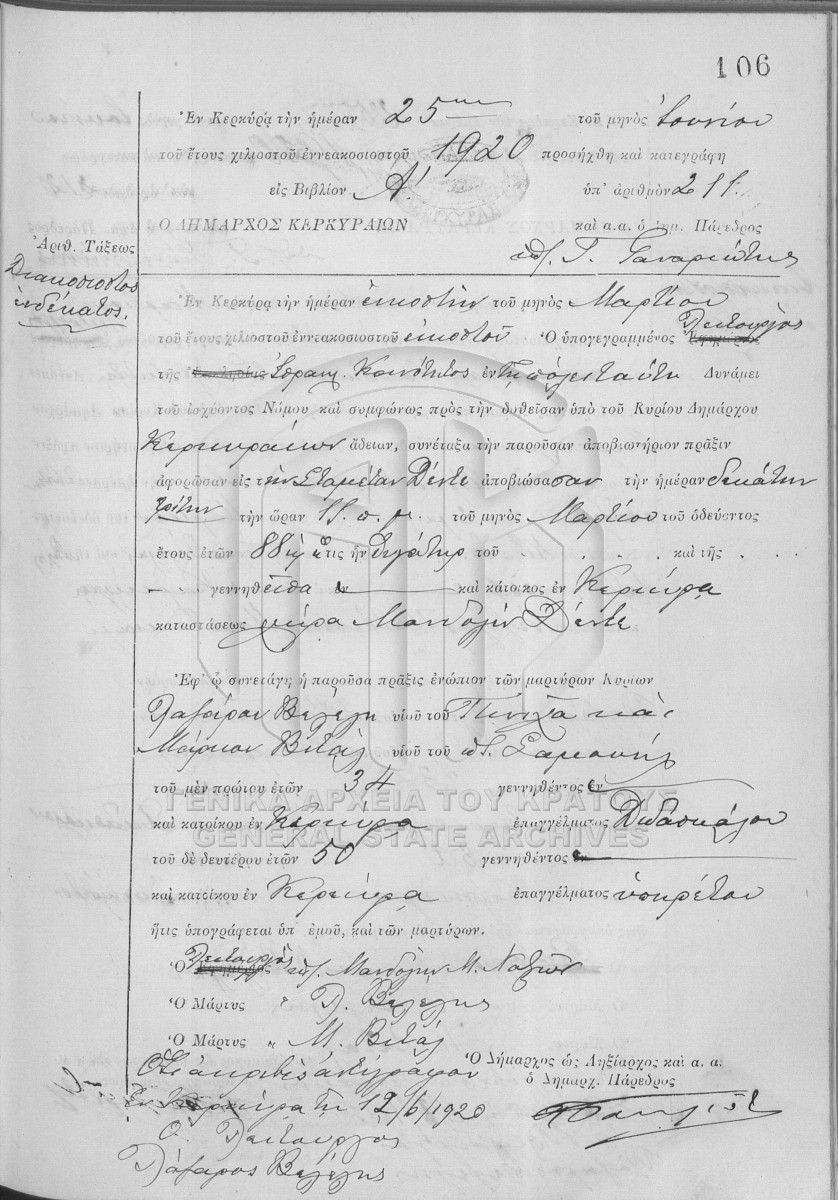 106
Ἐν Κερκύρᾳ τὴν ἡμέραν 25ην τοῦ μηνὸς Ἰουνίου
τοῦ ἔτους χιλιοστοῦ ἐννεακοσιοστοῦ 1920 προσήχθη καὶ κατεγράφη
εἰς Βιβλίον Α΄. ὑπ' ἀριθμὸν 211.
Ο ΔΗΜΑΡΧΟΣ ΚΕΡΚΥΡΑΙΩΝ καὶ α.α. ὁ Δημ. Πάρεδρος
Ἀριθ. Τάξεως
Διακοσιοστὸς
ἑνδέκατος.
Ἐν Κερκύρᾳ τὴν ἡμέραν εἰκοστὴν τοῦ μηνὸς Μαρτίου
τοῦ ἔτους χιλιοστοῦ ἐννεακοσιοστοῦ εἰκοστοῦ Ὁ ὑπογεγραμμένος Λειτουργὸς
τῆς Ἰσραηλ. Κοινότητος ἐν τῇ πόλει ταύτῃ Δυνάμει
τοῦ ἰσχύοντος Νόμου καὶ συμφώνως πρὸς τὴν δοθεῖσαν ὑπὸ τοῦ Κυρίου Δημάρχου
Κερκυραίων ἄδειαν, συνέταξα τὴν παροῦσαν ἀποβιωτήριον πρᾶξιν
ἀφορῶσαν εἰς τὴν Σταμέταν Δέντε ἀποβιώσασαν τὴν ἡμέραν δεκάτην
τρίτην τὴν ὥραν 11. π. μ. τοῦ μηνὸς Μαρτίου τοῦ ὁδεύοντος
ἔτους ἐτῶν 88 ἥτις ἦν θυγάτηρ τοῦ . . . . καὶ τῆς . . .
. . . γεννηθεῖσα ἐν καὶ κάτοικος ἐν Κερκύρᾳ
καταστάσεως χήρα Μανδολὶν Δέντε
Ἐφ' ᾧ συνετάγη ἡ παροῦσα πρᾶξις ἐνώπιον τῶν μαρτύρων Κυρίων
Λάζαρον Βελέλη υἱοῦ τοῦ Πινχᾶ καὶ
Μάρκον Βιτάλ υἱοῦ τοῦ ποτ. Σαμουὴλ
τοῦ μὲν πρώτου ἐτῶν 34 γεννηθέντος ἐν
ΓΕΝΙΚΑ ΑΡΧΕΙΑ ΤΟΥ ΚΡΑΤΟΥΣ
καὶ κατοίκου ἐν Κερκύρᾳ ἐπαγγέλματος Διδασκάλου
GENERAL STATE ARCHIVES
τοῦ δὲ δευτέρου ἐτῶν 50 γεννηθέντος ἐν
καὶ κατοίκου ἐν Κερκύρᾳ ἐπαγγέλματος ὑπηρέτου
ἥτις ὑπογράφεται ὑπ' ἐμοῦ, καὶ τῶν μαρτύρων.
Ὁ Λειτουργὸς
Ὁ Μάρτυς Λ. Βελέλης
Ὁ Μάρτυς Μ. Βιτάλ
Ὅτι ἀκριβὲς ἀντίγραφον
Ὁ Δήμαρχος ὡς Ληξίαρχος καὶ α. α.
ὁ Δημαρχ. Πάρεδρος
Ἐν Κερκύρᾳ τῇ 12/6/1920
Ὁ Λειτουργὸς
Λάζαρος Βελέλης